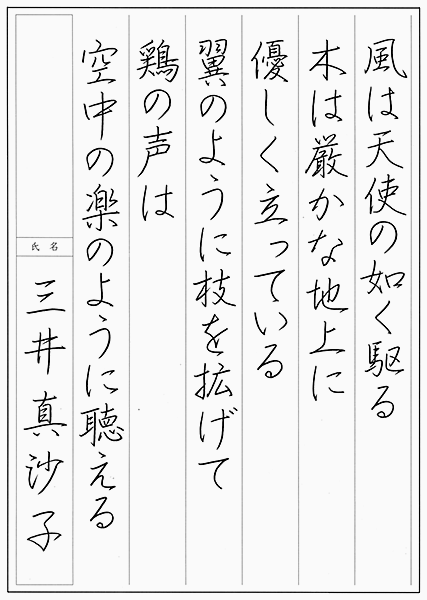 風は天使の如く駆る
木は厳かな地上に
優しく立っている
翼のように枝を拡げて
鶏の声は
空中の楽のように聴える
氏名
三井真沙子